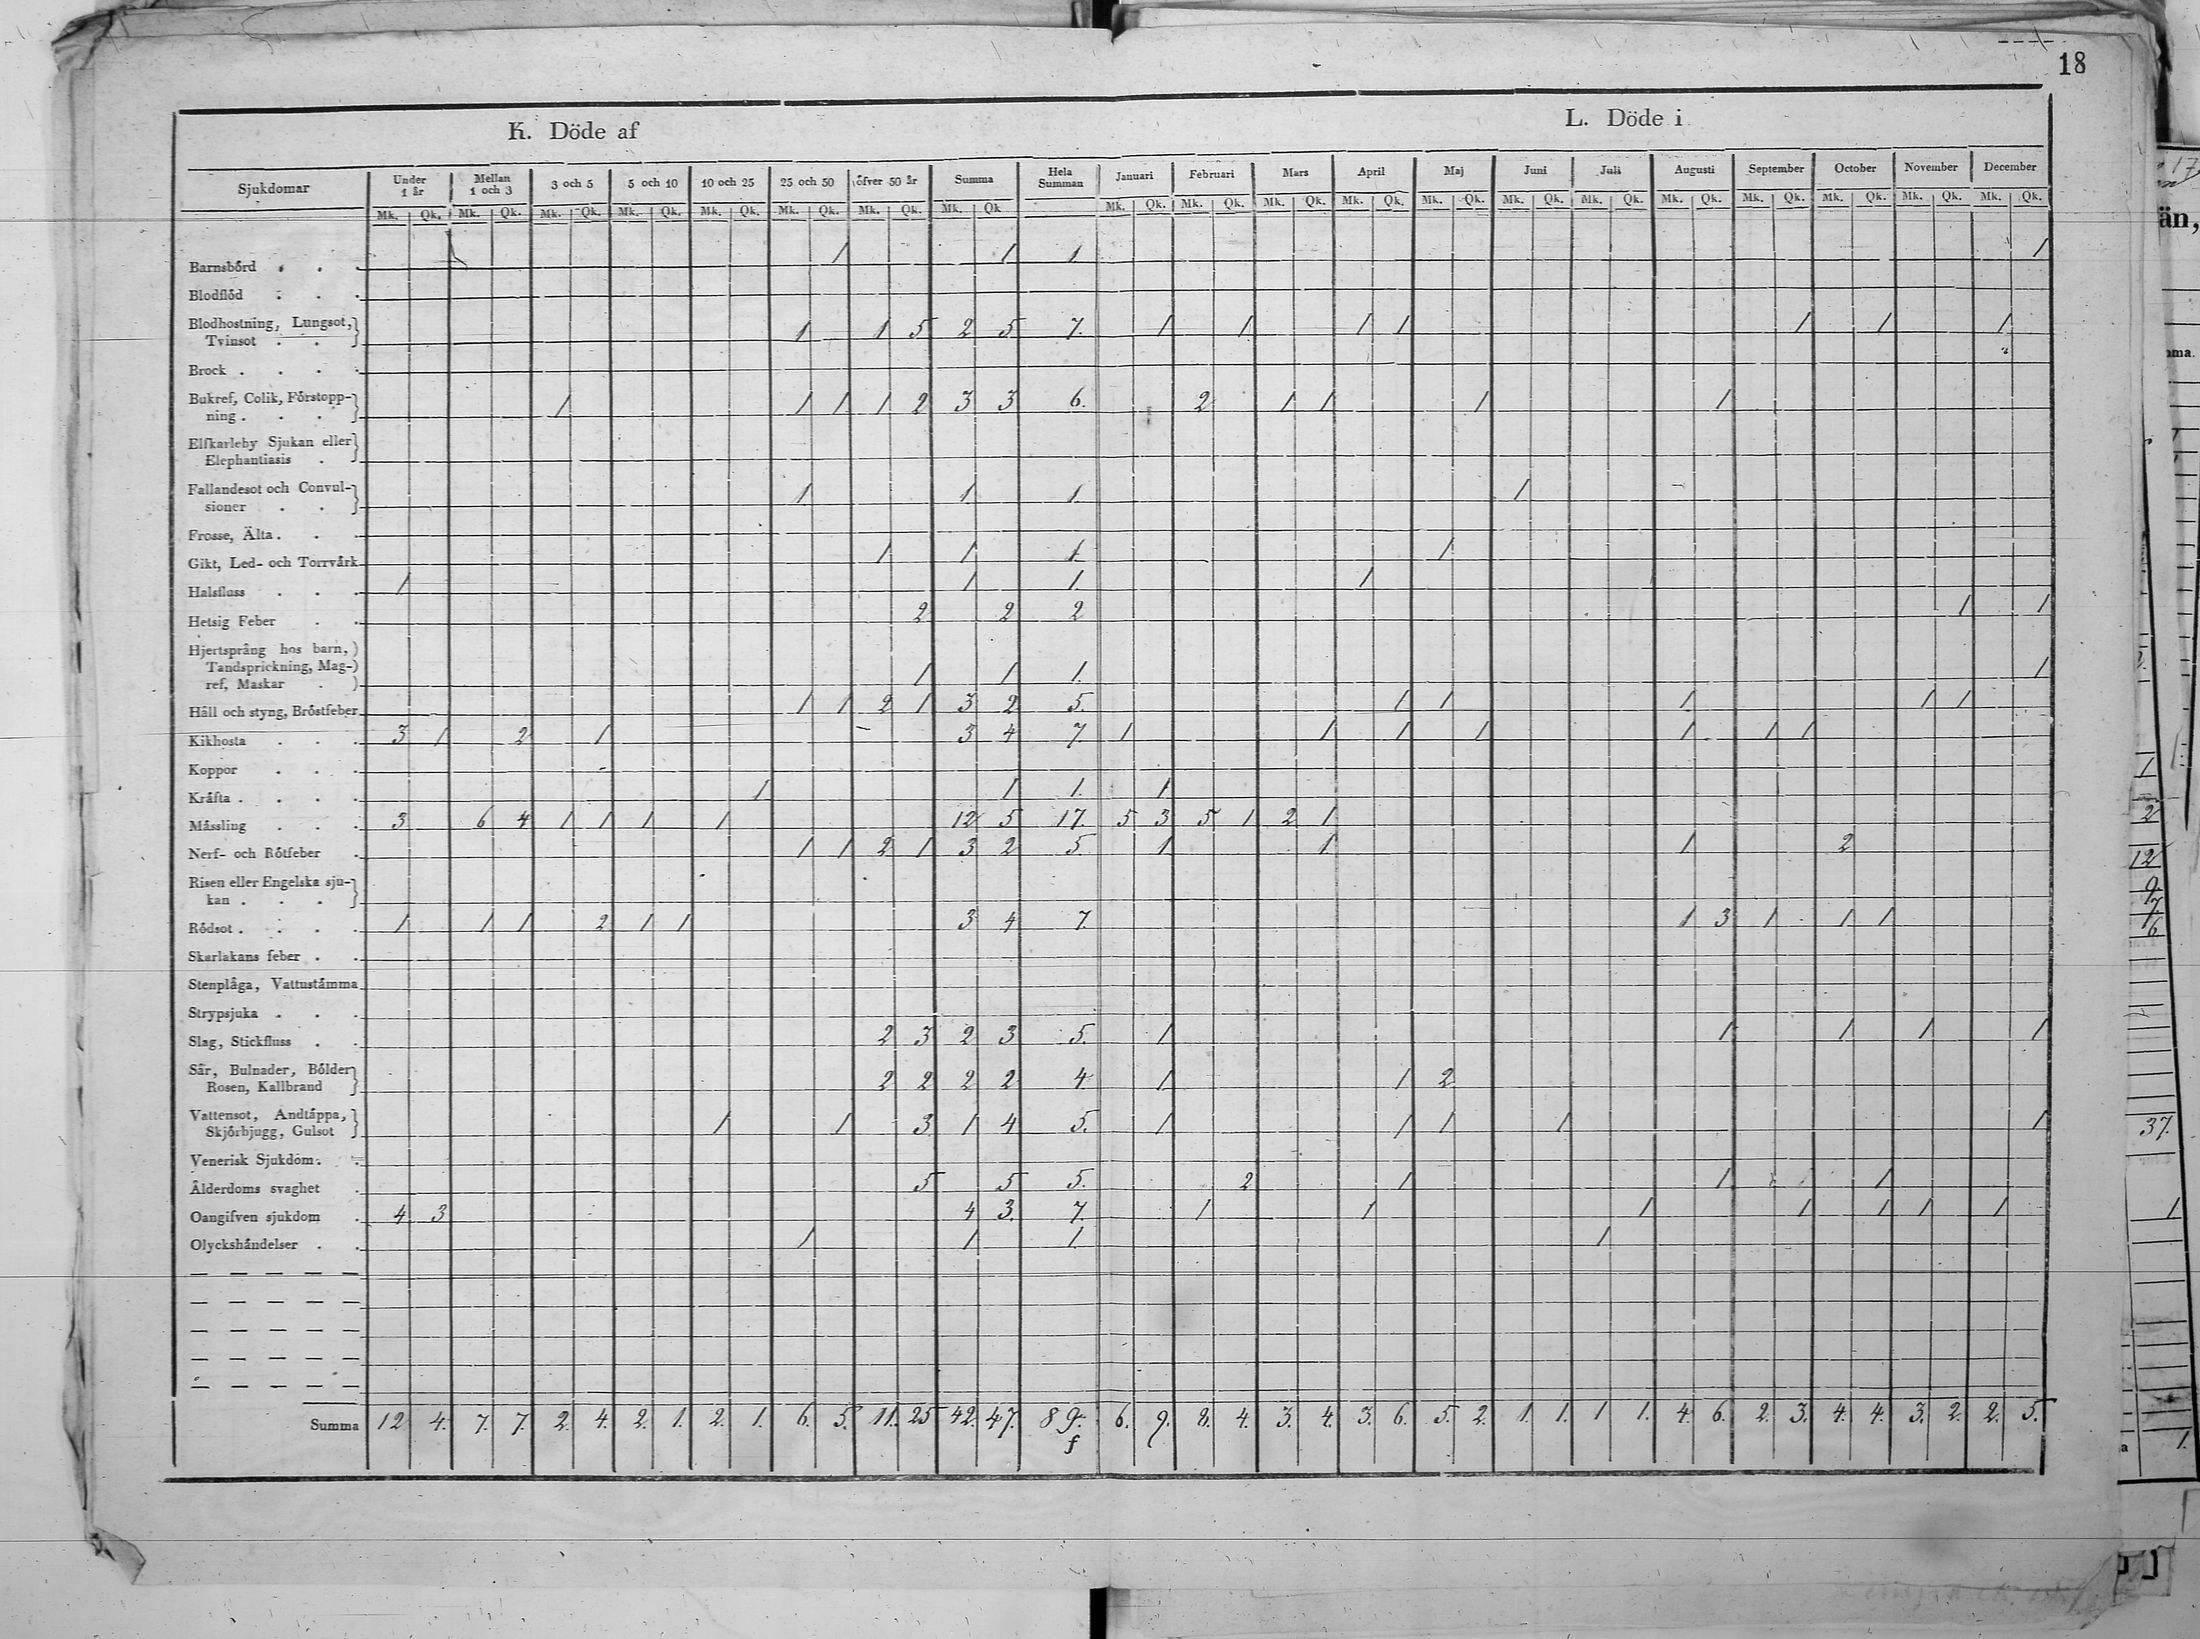 18
K. Döde af
L. Döde i
Sjukdomar Under 1 år Mellan 1 och 3 3 och 5 5 och 10 10 och 25 25 och 50 öfver 50 år Summa Hela Summan Januari Februari Mars April Maj Juni Juli Augusti September October November December
Mk. Qk. Mk. Qk. Mk. Qk. Mk. Qk. Mk. Qk. Mk. Qk. Mk. Qk. Mk. Qk Mk. Qk. Mk. Qk. Mk. Qk. Mk. Qk. Mk. Qk. Mk. Qk. Mk. Qk. Mk. Qk. Mk. Qk. Mk. Qk. Mk. Qk. Mk. Qk.
Barnsbörd 1 1 1 1
Blodflöd
Blodhostning, Lungsot,
Tvinsot 1 1 5 2 5 7. 1 1 1 1 1 1 1
Brock
Bukref, Colik, Förstopp-
ning 1 1 1 1 2 3 3 6. 2 1 1 1 1
Elfkarleby Sjukan eller
Elephantiasis
Fallandesot och Convul-
sioner 1 1 1. 1
Frosse, Älta
Gikt, Led- och Torrvärk 1 1 1 1
Halsfluss 1 1 1. 1
Hetsig Feber 2 2 2 1 1
Hjertsprång hos barn,
Tandsprickning, Mag-
ref, Maskar 1 1 1. 1
Håll och styng, Bröstfeber 1 1 2 1 3 2 5. 1 1 1 1 1
Kikhosta 3 1 2 1 3 4 7. 1 1 1 1 1 1 1
Koppor
Kräfta 1 1 1. 1
Mässling 3 6 4 1 1 1 1 12 5 17. 5 3 5 1 2 1
Nerf- och Rötfeber 1 1 2 1 3 2 5 1 1 1 2
Risen eller Engelska sju-
kan
Rödsot 1 1 1 2 1 1 3 4 7. 1 3 1 1 1
Skarlakans feber
Stenplåga, Vattustämma
Strypsjuka
Slag, Stickfluss 2 3 2 3 5. 1 1 1 1 1
Sår, Bulnader, Bölder
Rosen, Kallbrand 2 2 2 2 4 1 1 2
Vattensot, Andtäppa,
Skjörbjugg, Gulsot 1 1 3 1 4 5. 1 1 1 1 1
Venerisk Sjukdom
Ålderdoms svaghet 5 5 5. 2 1 1 1
Oangifven sjukdom 4 3 4 3. 7. 1 1 1 1 1 1 1
Olyckshändelser 1 1 1. 1
Summa 12 4. 7. 7. 2. 4. 2. 1. 2. 1. 6. 5. 11. 25 42. 47. 89. 6. 9. 8. 4. 3. 4. 3. 6. 5. 2. 1. 1. 1 1. 4. 6. 2. 3. 4. 4. 3. 2. 2. 5.
17
än,
1
2
12
9
7
6
37.
1
1.